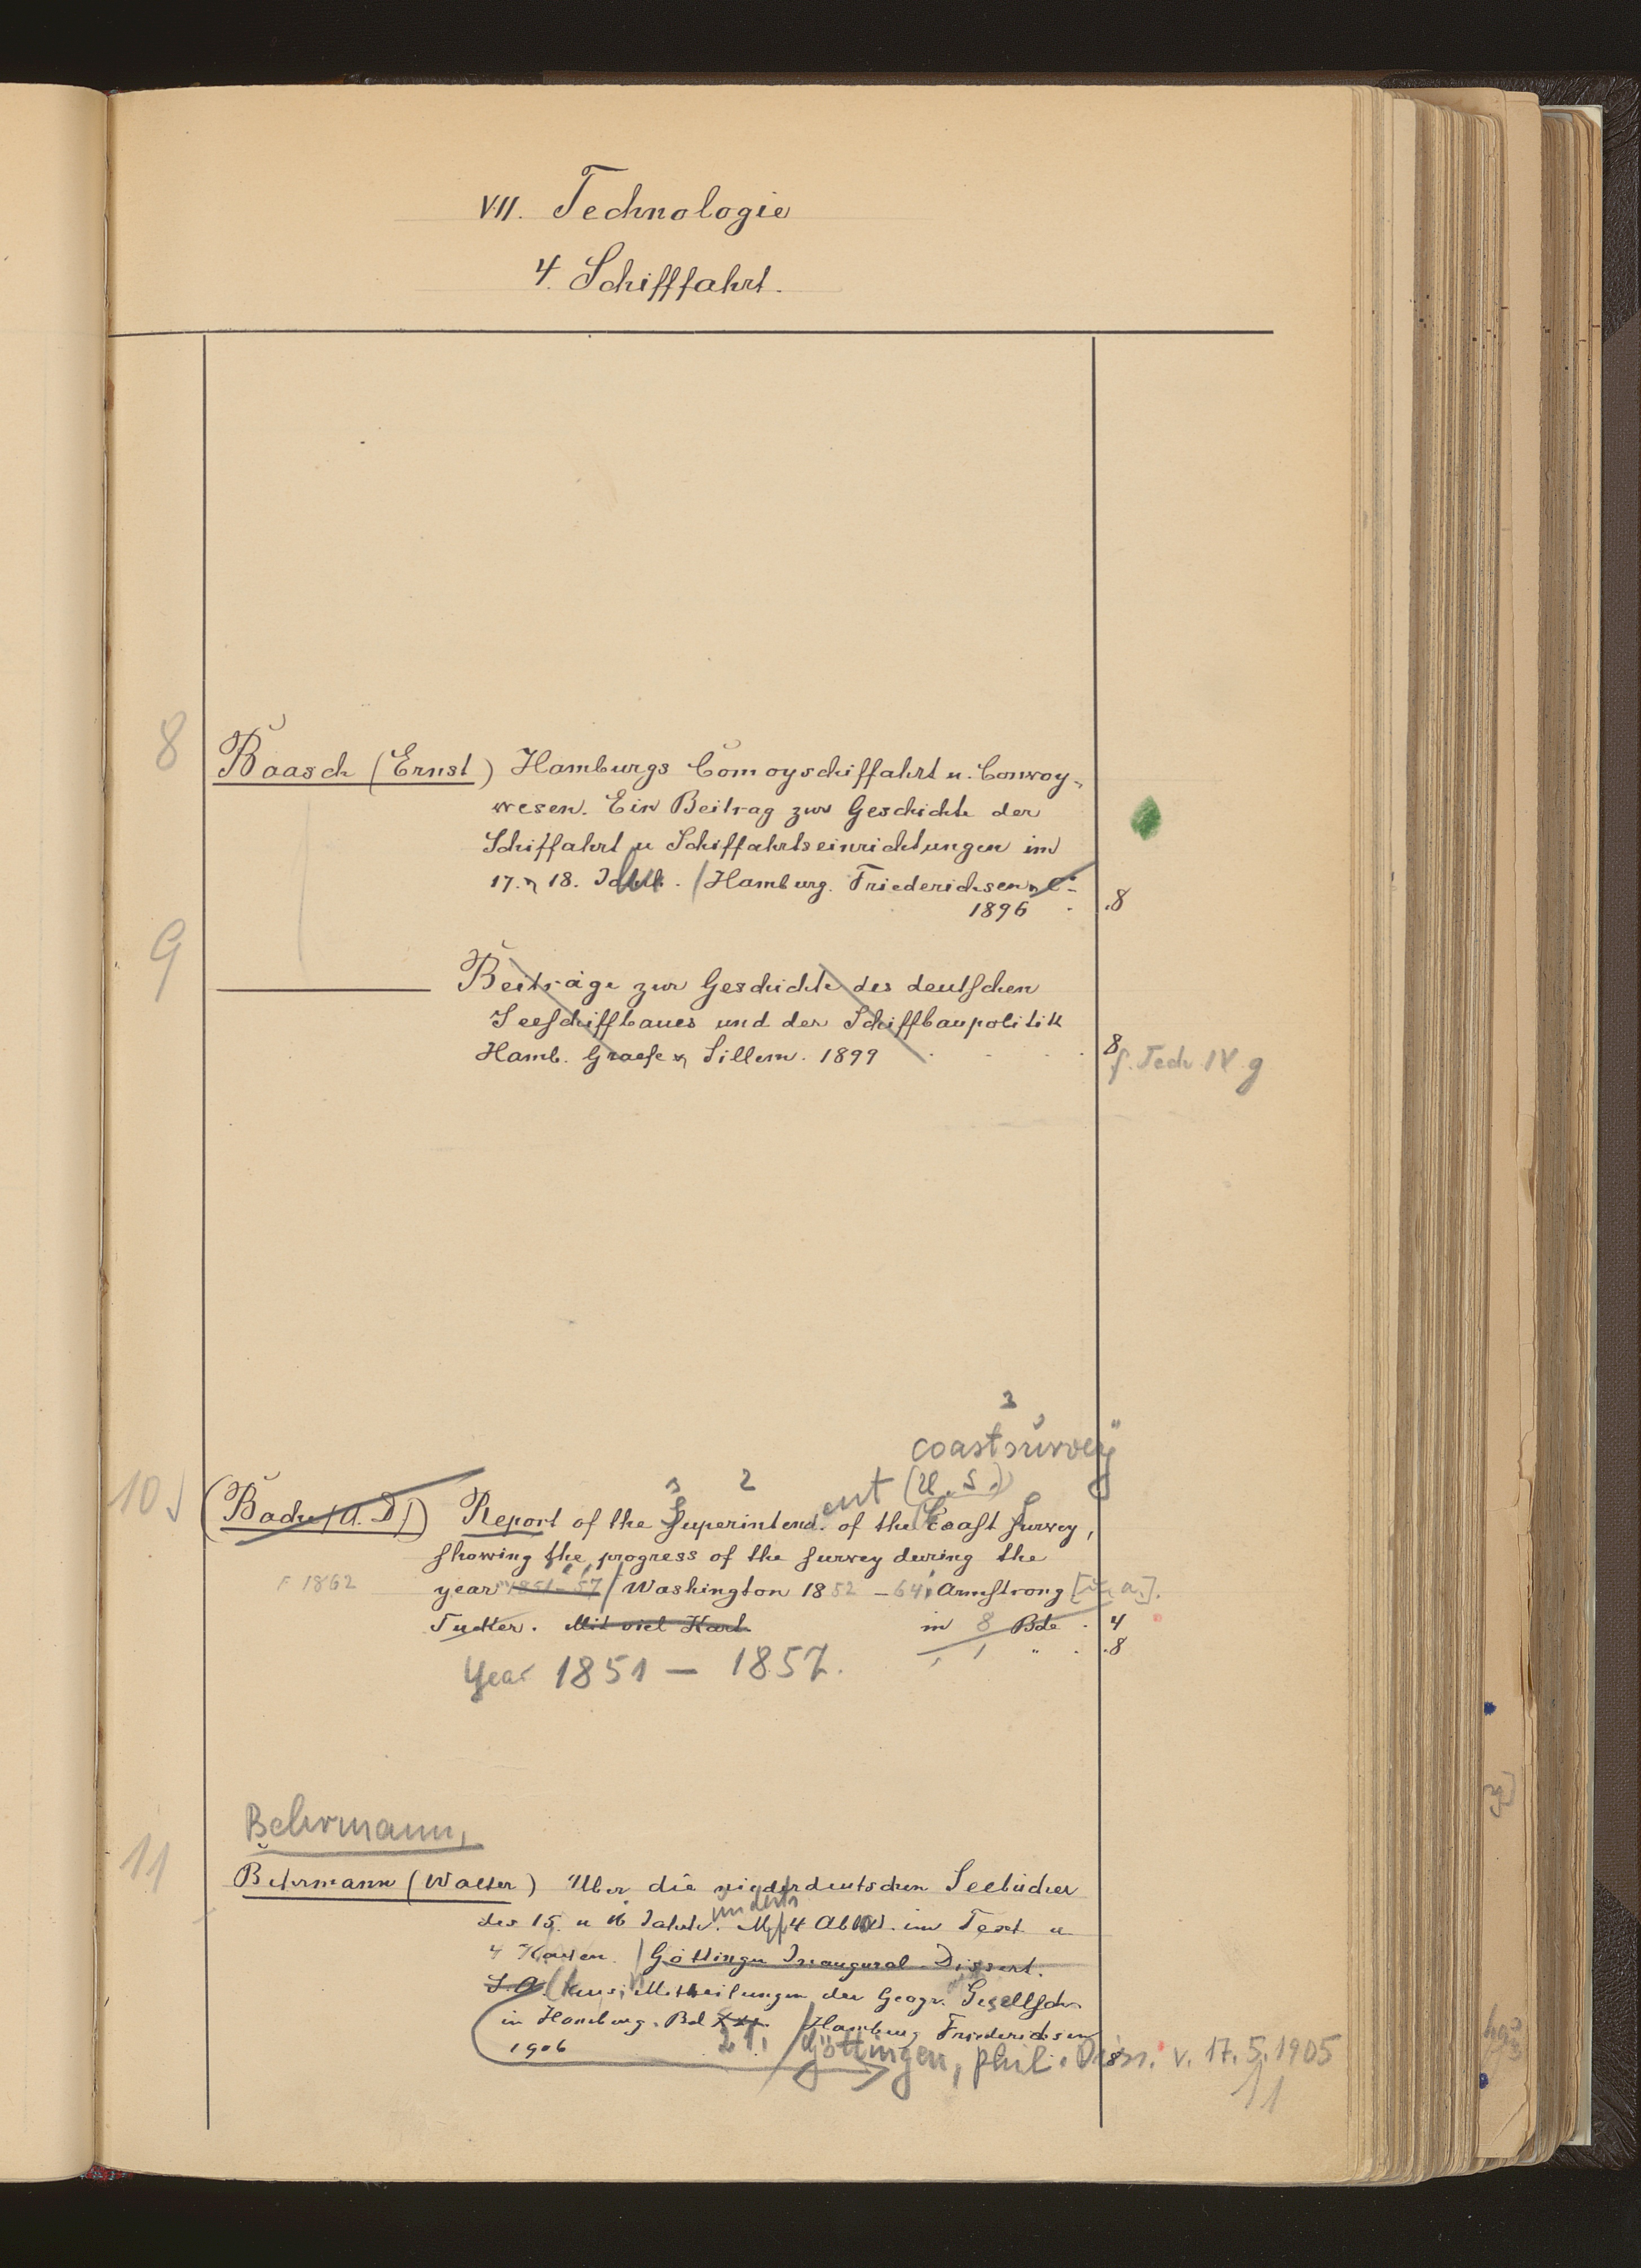 VII. Technologie
4. Schifffahrt.
8
Baasch (Ernst) Hamburgs Convoyschiffahrt u. Convoy-
wesen. Ein Beitrag zur Geschichte der
Schiffahrt u Schiffahrtseinrichtungen im
17. u 18. Jahrh. / Hamburg. Friederichsen
1896 . .8
9
Beiträge zur Geschichte des deutschen
Seeschiffbaues und der Schiffbaupolitik
Hamb. Graefe & Sillem. 1899 . . . . 8
f. Tech. IV. g
3
coast survey
3 2 ent (U.S.)
10
(Bache (A. D.)) Report of the Superintend. of the Coast Survey,
showing the progress of the survey during the
F 1862 year 1851-57 / Washington 1852 - 64. Armstrong [u. a.].
Tucker. Mit viel Kart. in 8 Bde . 4
" . .8
year 1851 - 1857.
Behrmann,
11
Behrmann (Walter) Über die niederdeutschen Seebücher
des 15. u 16 Jahrh. Mit 4 Abb. im Text u
4 Karten. / Göttingen Inaugural-Dissert.
S. A. (Aus: Mittheilungen der Geogr. Gesellsch.
in Hamburg. Bd XXI. / Hamburg Friederichsen
1906 21. / Göttingen, phil. Diss. v. 17. 5. 1905
11